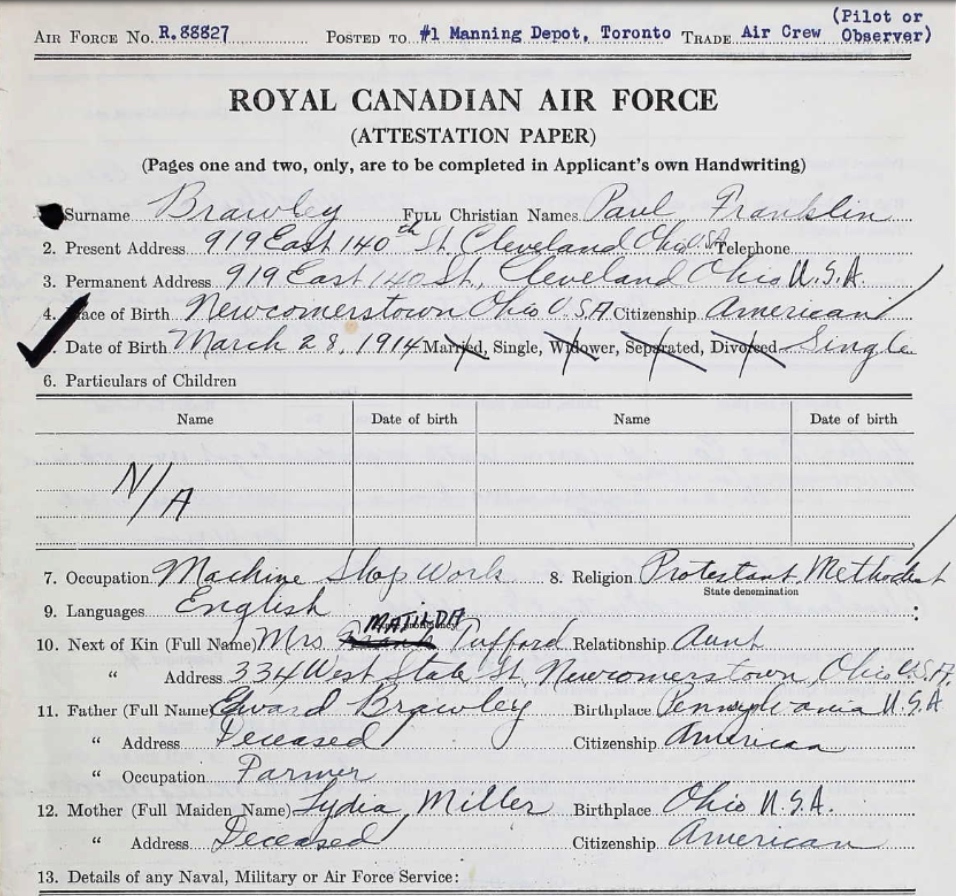 (Pilot or
AIR FORCE NO. R.88827 POSTED TO #1 Manning Depot, Toronto TRADE Air Crew Observer)
ROYAL CANADIAN AIR FORCE
(ATTESTATION PAPER)
(Pages one and two, only, are to be completed in Applicant's own Handwriting)
Surname Brawley FULL Christian Names Paul Franklin
2. Present Address 919 East 140th St. Cleveland Ohio U.S.A. Telephone
3. Permanent Address 919 East 140 St., Cleveland Ohio U.S.A.
4. Place of Birth Newcomerstown Ohio U.S.A Citizenship American
Date of Birth March 28, 1914 Married, Single, Widower, Separated, Divorced Single
6. Particulars of Children
Name Date of birth Name Date of birth
N/A
7. Occupation Machine Shop Work 8. Religion Protestant Methodist
State denomination
9. Languages English
MATILDA
10. Next of Kin (Full Name) Mrs Pufford Relationship Aunt
" Address 334 West State St. Newcomerstown Ohio U.S.A.
11. Father (Full Name) Edward Brawley Birthplace Pennsylvania U.S.A
" Address Deceased Citizenship American
" Occupation Farmer
12. Mother (Full Maiden Name) Lydia Miller Birthplace Ohio U.S.A.
" Address Deceased Citizenship American
13. Details of any Naval, Military or Air Force Service: